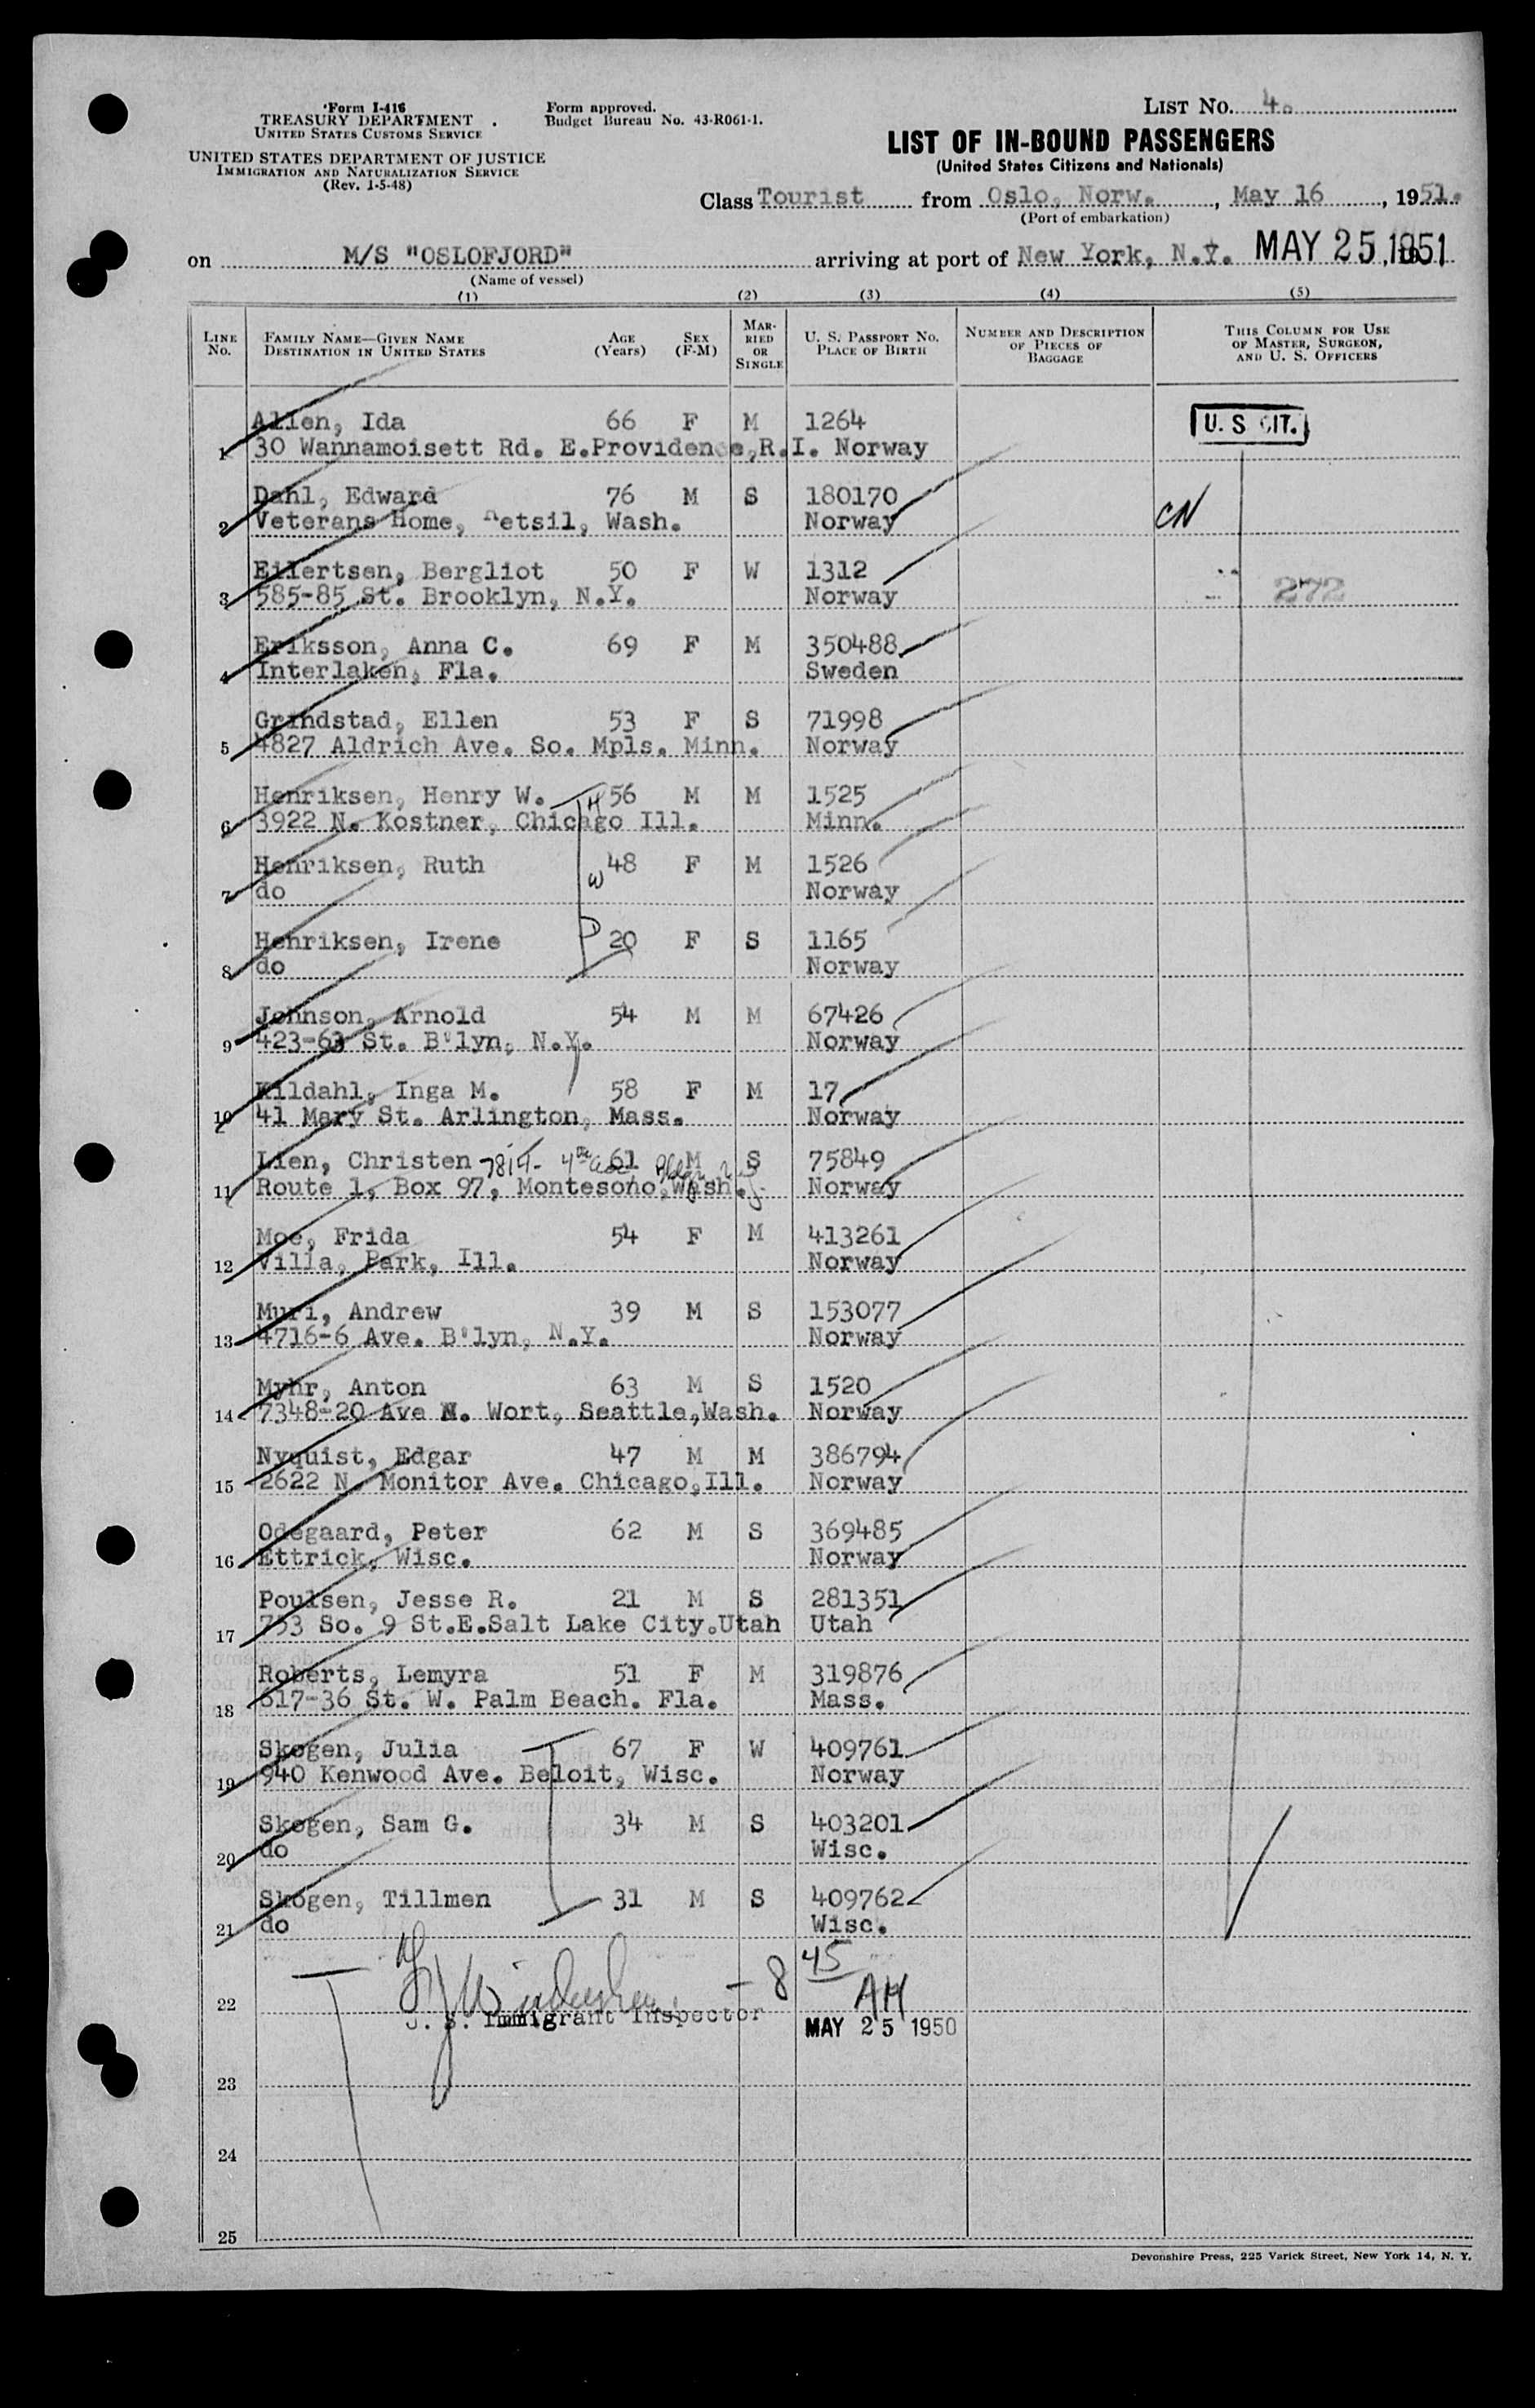 Form I-416
TREASURY DEPARTMENT
UNITED STATES CUSTOMS SERVICE
UNITED STATES DEPARTMENT OF JUSTICE
IMMIGRATION AND NATURALIZATION SERVICE
(Rev. 1-5-48)
Form approved.
Budget Bureau No. 43-R061-1.
LIST No. 4.
LIST OF IN-BOUND PASSENGERS
(United States Citizens and Nationals)
Class Tourist from Oslo, Norw., May 16, 1951.
(Port of embarkation)
on M/S "OSLOFJORD" arriving at port of New York, N.Y. MAY 25, 1951
(Name of vessel)
(1) (2) (3) (4) (5)
LINE No. FAMILY NAME—GIVEN NAME DESTINATION IN UNITED STATES AGE (Years) SEX (F-M) MARRIED OR SINGLE U. S. PASSPORT No. PLACE OF BIRTH NUMBER AND DESCRIPTION OF PIECES OF BAGGAGE THIS COLUMN FOR USE OF MASTER, SURGEON, AND U. S. OFFICERS
Allen, Ida 66 F M 1264 U. S CIT.
1 30 Wannamoisett Rd. E.Providence,R.I. Norway
Dahl, Edward 76 M S 180170 CN
2 Veterans Home, Retsil, Wash. Norway
Eilertsen, Bergliot 50 F W 1312
3 585-85 St. Brooklyn, N.Y. Norway 272
Eriksson, Anna C. 69 F M 350488
4 Interlaken, Fla. Sweden
Grindstad, Ellen 53 F S 71998
5 4827 Aldrich Ave. So. Mpls. Minn. Norway
Henriksen, Henry W. H 56 M M 1525
6 3922 N. Kostner, Chicago Ill. Minn.
Henriksen, Ruth W 48 F M 1526
7 do Norway
Henriksen, Irene D 20 F S 1165
8 do Norway
Johnson, Arnold 54 M M 67426
9 423-63 St. B'lyn, N.Y. Norway
Kildahl, Inga M. 58 F M 17
10 41 Mary St. Arlington, Mass. Norway
Lien, Christen 61 M S 75849
11 Route 1, Box 97, Montesono,Wash. Norway
Moe, Frida 54 F M 413261
12 Villa, Park, Ill. Norway
Muri, Andrew 39 M S 153077
13 4716-6 Ave. B'lyn, N.Y. Norway
Myhr, Anton 63 M S 1520
14 7348-20 Ave N. Wort, Seattle,Wash. Norway
Nyquist, Edgar 47 M M 386794
15 2622 N. Monitor Ave. Chicago,Ill. Norway
Odegaard, Peter 62 M S 369485
16 Ettrick, Wisc. Norway
Poulsen, Jesse R. 21 M S 281351
17 753 So. 9 St.E.Salt Lake City.Utah Utah
Roberts, Lemyra 51 F M 319876
18 517-36 St. W. Palm Beach. Fla. Mass.
Skogen, Julia 67 F W 409761
19 940 Kenwood Ave. Beloit, Wisc. Norway
Skogen, Sam G. 34 M S 403201
20 do Wisc.
Skogen, Tillmen 31 M S 409762
21 do Wisc.
- 8 45 AM
22 U. S. Immigrant Inspector MAY 25 1950
23
24
25
Devonshire Press, 225 Varick Street, New York 14, N. Y.